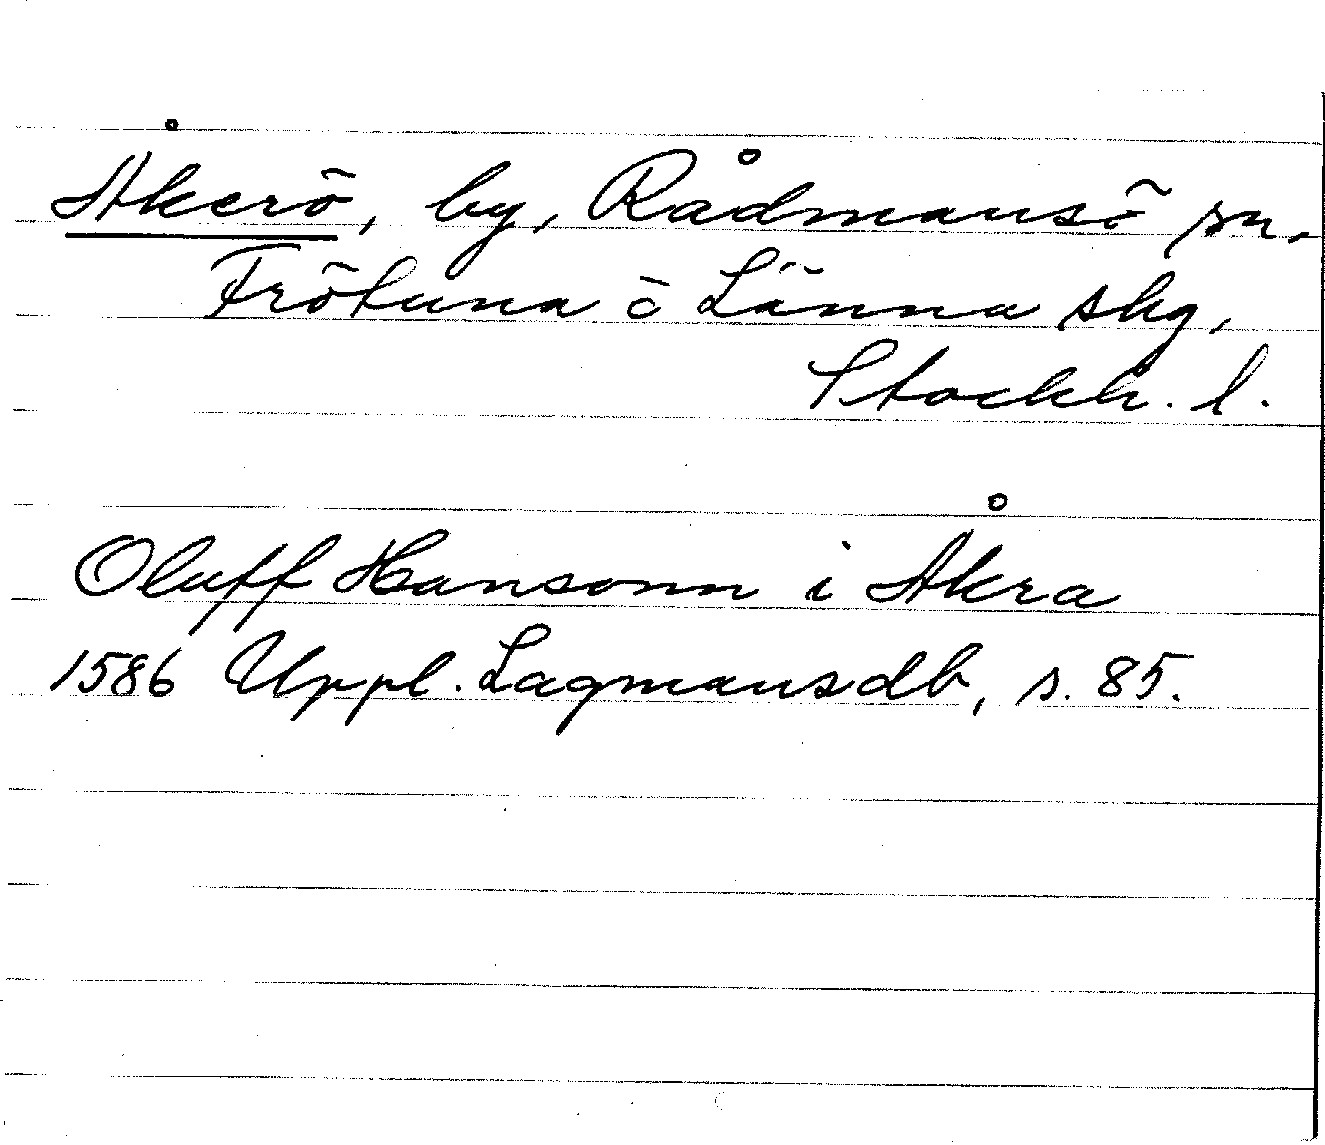 Åkerö, by, Rådmansö sn.
Frötuna o Länna skg,
Stockh. l.
Oluff Hansonn i Åkra
1586 Uppl. Lagmansdb, s. 85.